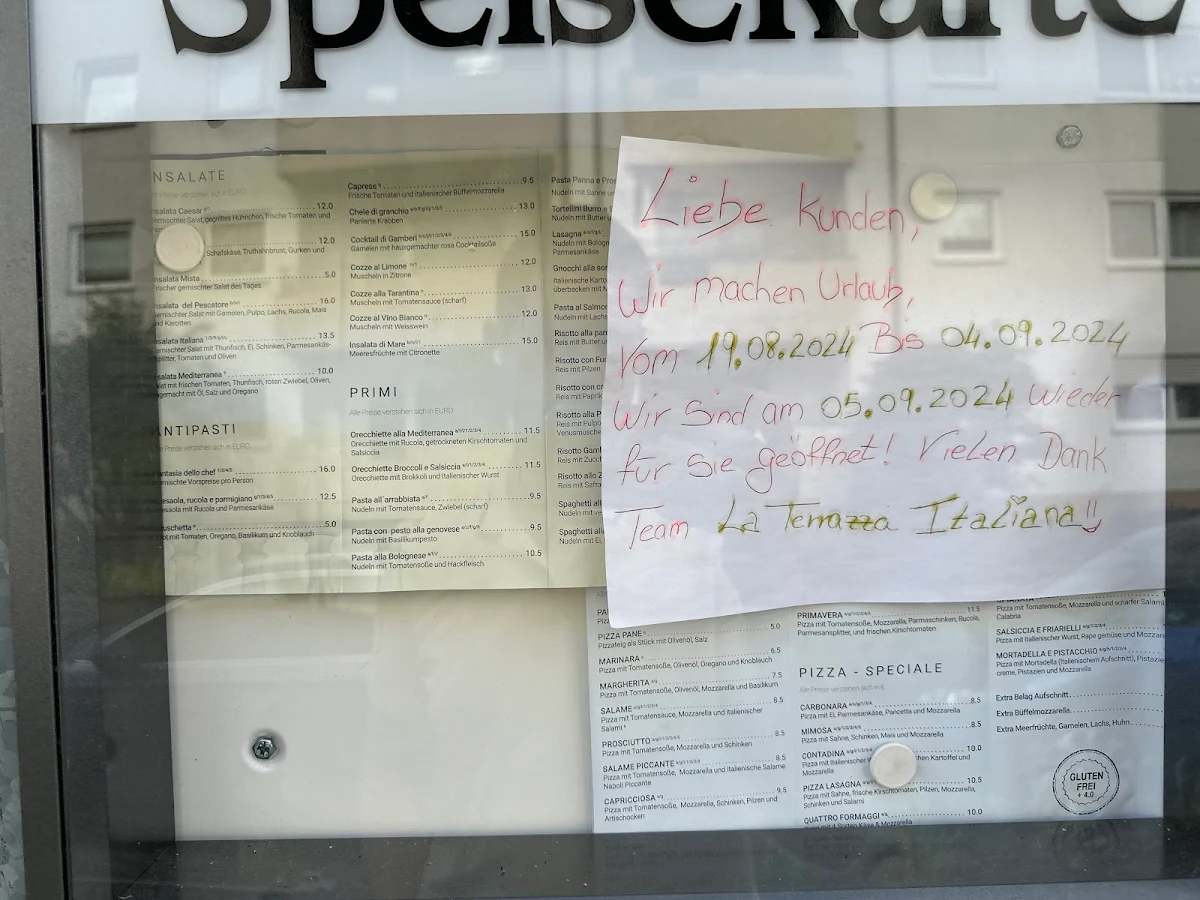 Speisekarte
NSALATE
nsalata Caesar 12.0
gegrilltes Hühnchen, frische Tomaten und
12.0
Schafskäse, Truthahnbrust, Gurken und
nsalata Mista 5.0
ischer gemischter Salat des Tages
nsalata del Pescatore 16.0
emischter Salat mit Garnelen, Pulpo, Lachs, Rucola, Mais
nd Karotten
nsalata Italiana 13.5
emischter Salat mit Thunfisch, Ei, Schinken, Parmesankäs-
plitter, Tomaten und Oliven
nsalata Mediterranea 10.0
lat mit frischen Tomaten, Thunfisch, roten Zwiebel, Oliven,
ngemacht mit Öl, Salz und Oregano
ANTIPASTI
e Preise verstehen sich in EURO
antasia dello chef 16.0
emischte Vorspeise pro Person
esaola, rucola e parmigiano 12.5
esaola mit Rucola und Parmesankäse
uschetta 5.0
ot mit Tomaten, Oregano, Basilikum und Knoblauch
Caprese 9.5
Frische Tomaten und italienischer Büffelmozzarella
Chele di granchio 13.0
Panierte Krabben
Cocktail di Gamberi 15.0
Garnelen mit hausgemachter rosa Cocktailsoße
Cozze al Limone 12.0
Muscheln in Zitrone
Cozze alla Tarantina 13.0
Muscheln mit Tomatensauce (scharf)
Cozze al Vino Bianco 12.0
Muscheln mit Weisswein
Insalata di Mare 15.0
Meeresfrüchte mit Citronette
PRIMI
Alle Preise verstehen sich in EURO
Orecchiette alla Mediterranea 11.5
Orecchiette mit Rucola, getrockneten Kirschtomaten und
Salsiccia
Orecchiette Broccoli e Salsiccia 11.5
Orecchiette mit Brokkoli und Italienischer Wurst
Pasta all'arrabbiata 9.5
Nudeln mit Tomatensauce, Zwiebel (scharf)
Pasta con pesto alla genovese 9.5
Nudeln mit Basilikumpesto
Pasta alla Bolognese 10.5
Nudeln mit Tomatensoße und Hackfleisch
Pasta Panna e Pro
Nudeln mit Sahne u
Tortellini Burro e
Nudeln mit Butter u
Lasagna
Nudeln mit Bologn
Parmesankäse
Gnocchi alla sor
Italienische Karto
überbacken mit M
Pasta al Salmo
Nudeln mit Lachs
Risotto alla par
Reis mit Butter u
Risotto con Fu
Reis mit Pilzen
Risotto con cr
Reis mit Paprik
Risotto alla P
Reis mit Pulpo
Venusmusche
Risotto Gam
Reis mit Zucc
Risotto allo Z
Reis mit Safra
Spaghetti all
Spaghetti al
Nudeln mit Ei,
Liebe Kunden,
Wir machen Urlaub,
Vom 19.08.2024 Bis 04.09.2024
Wir sind am 05.09.2024 wieder
für sie geöffnet! Vielen Dank
Team La Terrazza Italiana!!
PIZZA PANE 5.0
Pizzateig als Stück mit Olivenöl, Salz
MARINARA 6.5
Pizza mit Tomatensoße, Olivenöl, Oregano und Knoblauch
MARGHERITA 7.5
Pizza mit Tomatensoße, Olivenöl, Mozzarella und Basilikum
SALAME 8.5
Pizza mit Tomatensauce, Mozzarella und Italienischer
Salami
PROSCIUTTO 8.5
Pizza mit Tomatensoße, Mozzarella und Schinken
SALAME PICCANTE 8.5
Pizza mit Tomatensoße, Mozzarella und Italienische Salame
Napoli Piccante
CAPRICCIOSA 9.5
Pizza mit Tomatensoße, Mozzarella, Schinken, Pilzen und
Artischocken
PRIMAVERA 11.5
Pizza mit Tomatensoße, Mozzarella, Parmaschinken, Rucola,
Parmesansplitter, und frischen Kirschtomaten
PIZZA - SPECIALE
Alle Preise verstehen sich in €
CARBONARA 8.5
Pizza mit Ei, Parmesankäse, Pancetta und Mozzarella
MIMOSA 8.5
Pizza mit Sahne, Schinken, Mais und Mozzarella
CONTADINA 10.0
Pizza mit Italienischer chen Kartoffel und
Mozzarella
PIZZA LASAGNA 10.5
Pizza mit Sahne, frische Kirschtomaten, Pilzen, Mozzarella,
Schinken und Salami
QUATTRO FORMAGGI 10.0
Pizza mit 4 Sorten Käse & Mozzarella
Pizza mit Tomatensoße, Mozzarella und scharfer Salami
Calabria
SALSICCIA E FRIARIELLI
Pizza mit Italienischer Wurst, Rape gemüse und Mozzare
MORTADELLA E PISTACCHIO
Pizza mit Mortadella (Italienischem Aufschnitt), Pistazie
creme, Pistazien und Mozzarella
Extra Belag Aufschnitt
Extra Büffelmozzarella
Extra Meerfrüchte, Garnelen, Lachs, Huhn
GLUTEN
FREI
+ 4.0